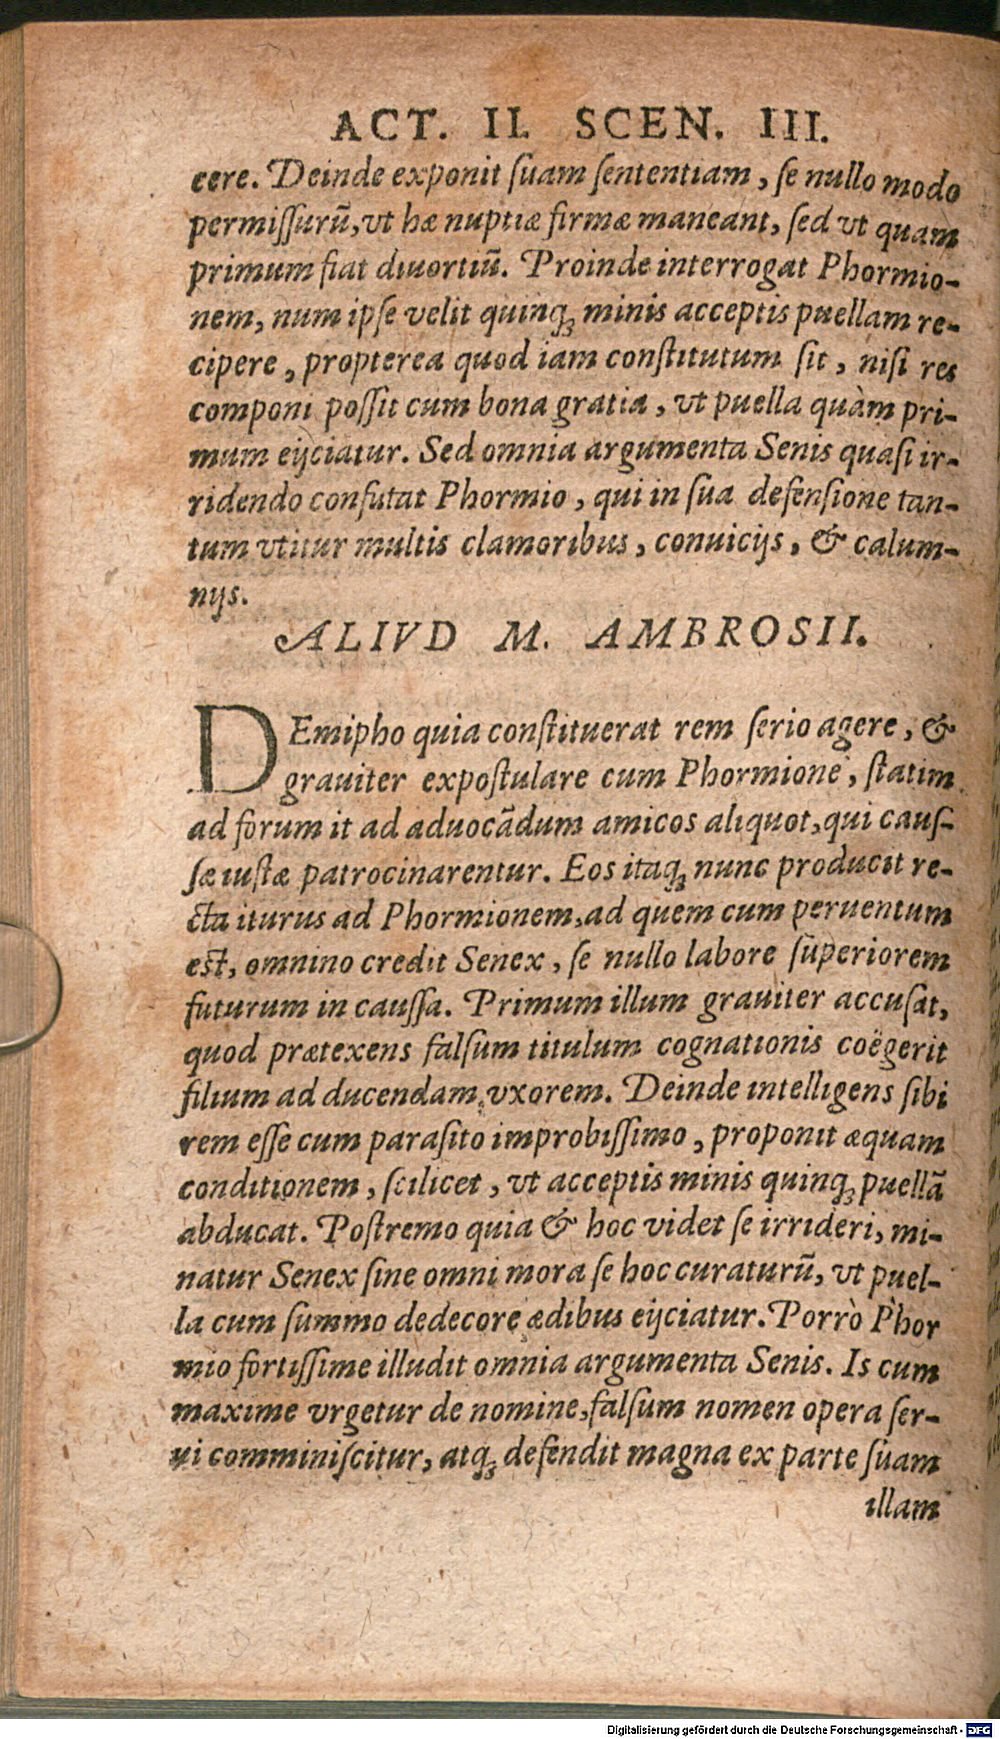 ACT. II. SCEN. III.
cere. Deinde exponit ſuam ſententiam, ſe nullo modo
permiſſurũ, vt hæ nuptiæ firmæ maneant, ſed vt quam
primum fiat diuortiũ. Proinde interrogat Phormio-
nem, num ipſe velit quinq; minis acceptis puellam re-
cipere, propterea quod iam conſtitutum ſit, niſi res
componi poſſit cum bona gratia, vt puella quàm pri-
mum eijciatur. Sed omnia argumenta Senis quaſi ir-
ridendo confutat Phormio, qui in ſua defenſione tan-
tum vtitur multis clamoribus, conuicijs, & calum-
nijs.
ALIVD M. AMBROSII.
DEmipho quia conſtituerat rem ſerio agere, &
grauiter expoſtulare cum Phormione, ſtatim
ad forum it ad aduocãdum amicos aliquot, qui cauſ-
ſæ iuſtæ patrocinarentur. Eos itaq; nunc producit re-
cta iturus ad Phormionem, ad quem cum peruentum
eſt, omnino credit Senex, ſe nullo labore ſuperiorem
futurum in cauſſa. Primum illum grauiter accuſat,
quod prætexens falſum titulum cognationis coëgerit
filium ad ducendam vxorem. Deinde intelligens ſibi
rem eſſe cum paraſito improbiſſimo, proponit æquam
conditionem, ſcilicet, vt acceptis minis quinq; puellã
abducat. Poſtremo quia & hoc videt ſe irrideri, mi-
natur Senex ſine omni mora ſe hoc curaturũ, vt puel-
la cum ſummo dedecore ædibus eijciatur. Porrò Phor
mio fortiſſime illudit omnia argumenta Senis. Is cum
maxime vrgetur de nomine, falſum nomen opera ſer-
ui comminiſcitur, atq; defendit magna ex parte ſuam
illam
Digitalisierung gefördert durch die Deutsche Forschungsgemeinschaft - DFG